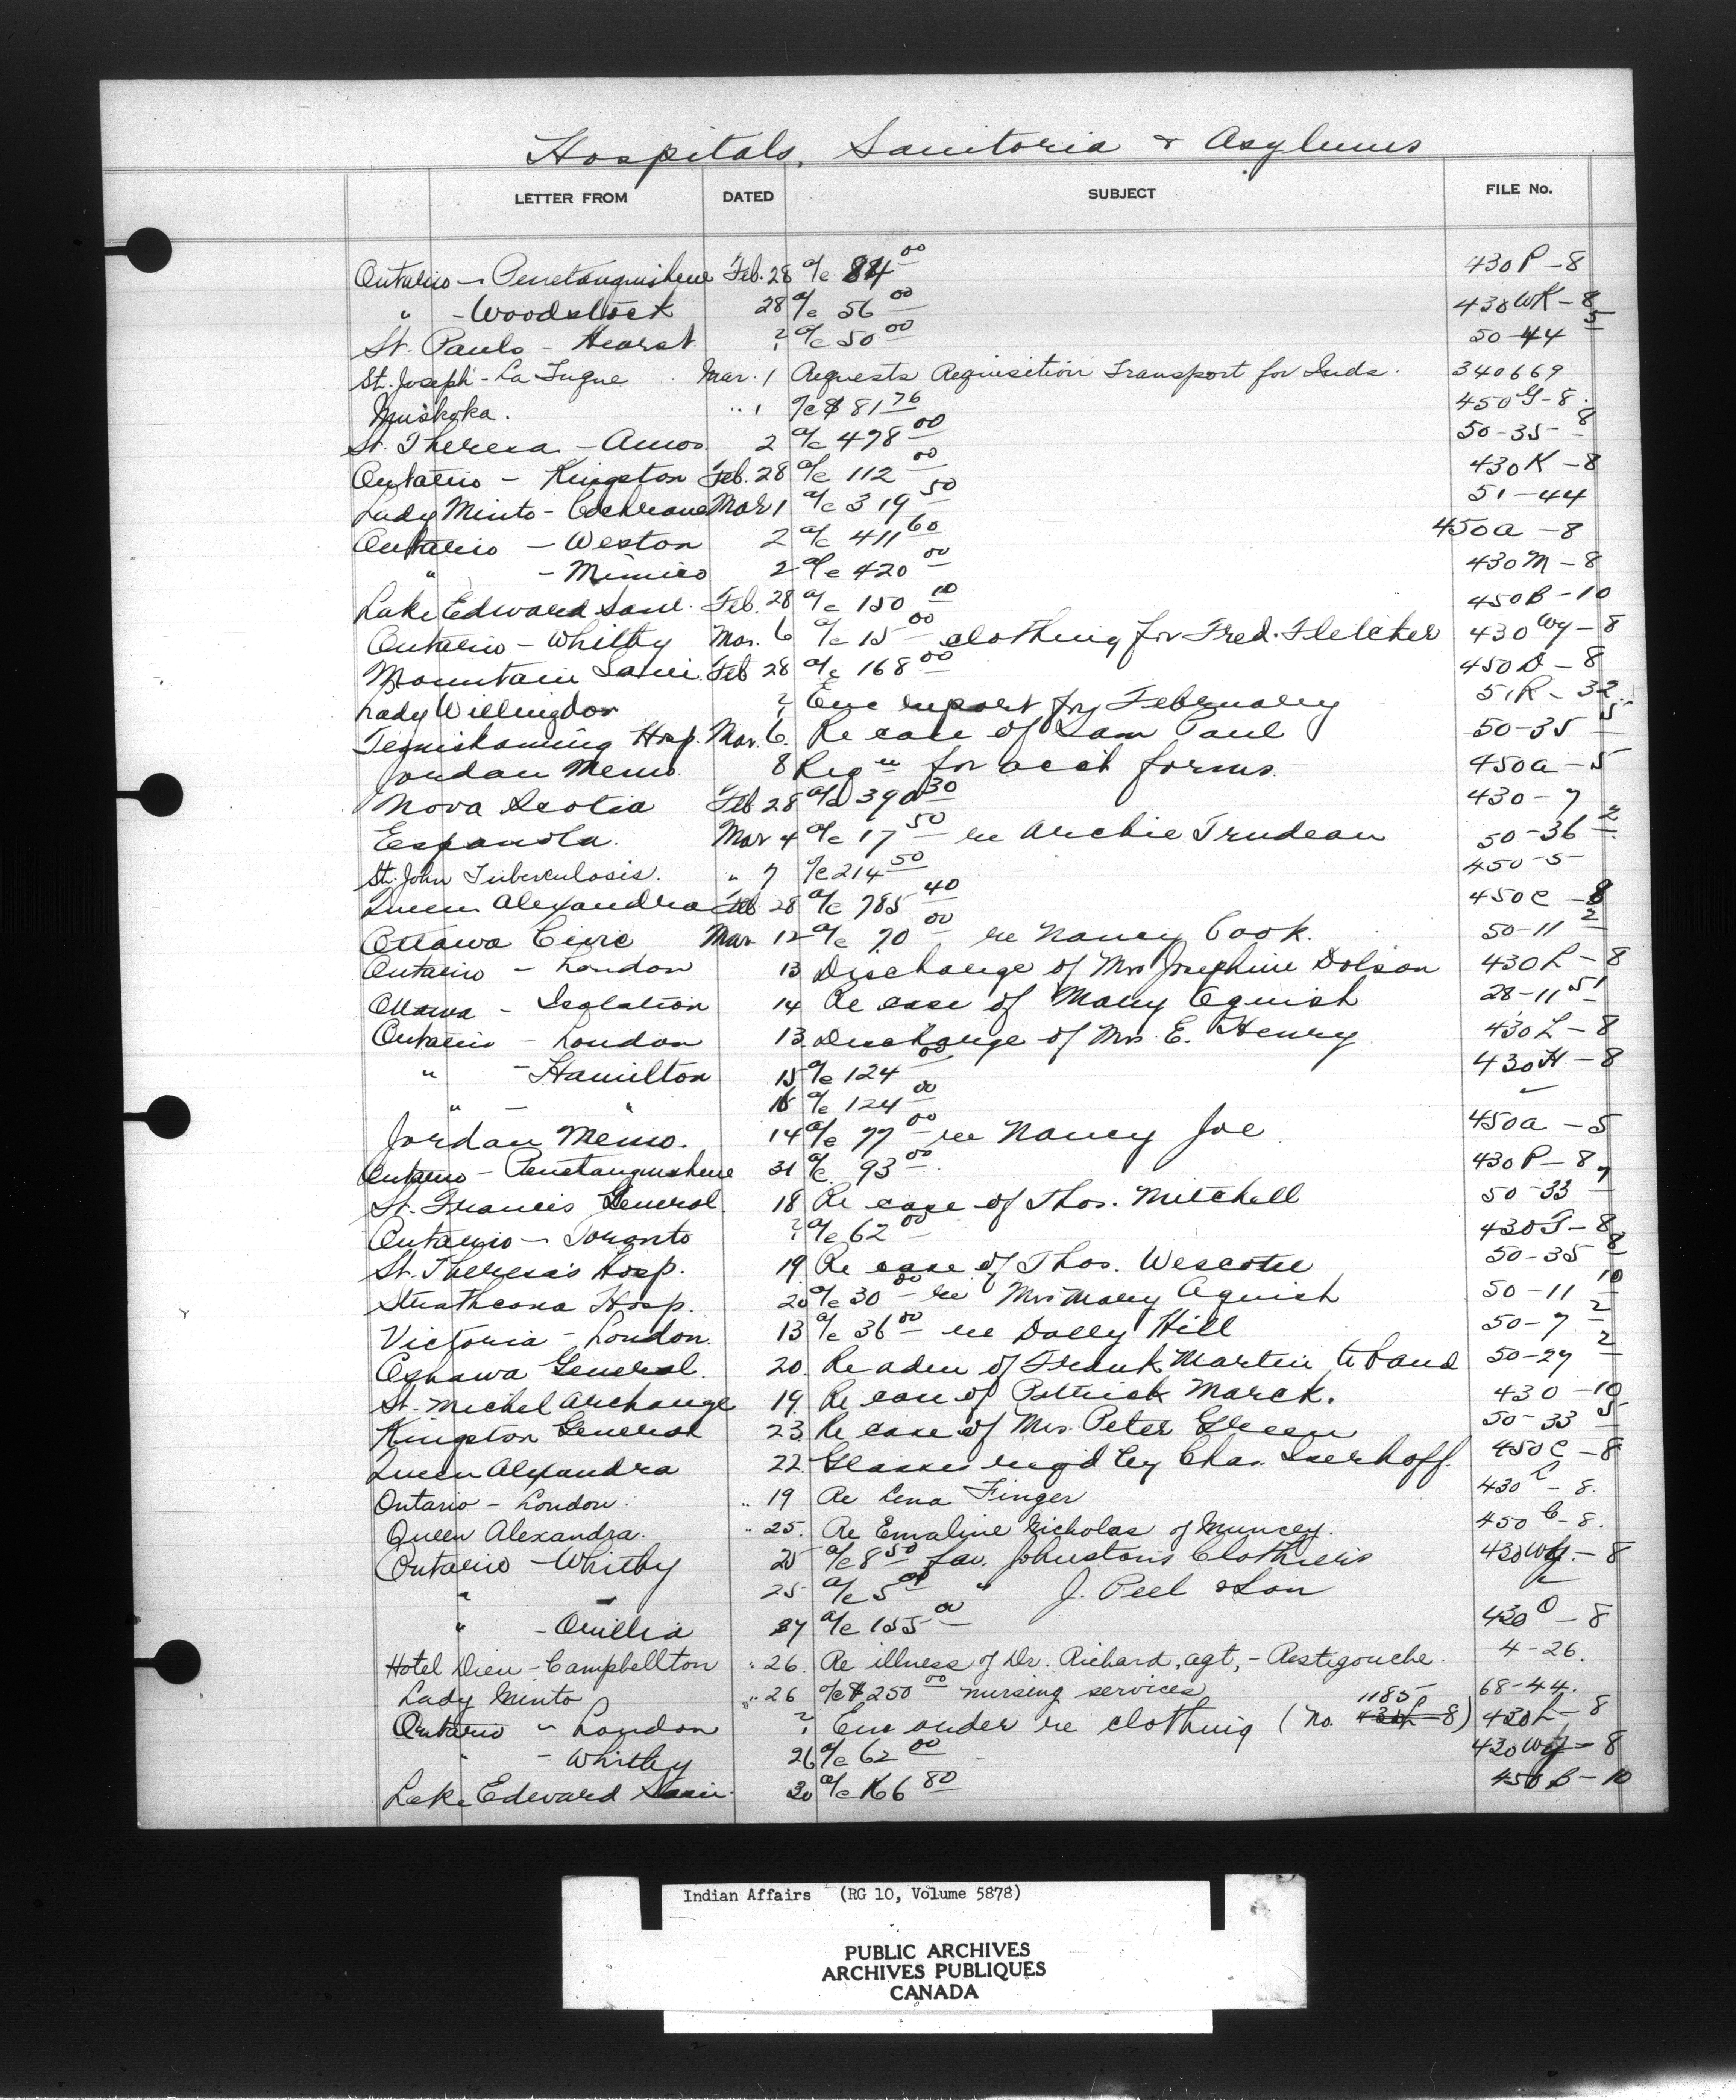 Hospitals, Sanitoria & Asylums
LETTER FROM DATED SUBJECT FILE No.
Ontario - Penetanguishene Feb. 28 a/c 84 00 430 P - 8
" - Woodstock 28 a/c 56 00 430 WK - 8
St. Pauls - Hearst ? a/c 50 00 50-44 5
St. Joseph - La Tuque Mar. 1 Requests Requisition Transport for Inds. 340669
Muskoka. " 1 a/c $ 81 76 450 G - 8.
St. Theresa - Amos 2 a/c 478 00 50-35 8
Ontario - Kingston Feb. 28 a/c 112 00 430 K - 8
Lady Minto - Cochrane Mar 1 a/c 319 50 51-44
Ontario - Weston 2 a/c 411 60 450a - 8
" - Mimico 2 a/c 420 00 430 M - 8
Lake Edward Sani. Feb. 28 a/c 150 10 450B - 10
Ontario - Whitby Mar. 6 a/c 15 00 clothing for Fred. Fletcher 430 Wy - 8
Mountain Sani. Feb 28 a/c 168 00 450 D - 8
Lady Willingdon ? Enc report for February 51R - 32
Temiskaming Hosp. Mar. 6. Re case of Sam Paul 50-35 5
Jordan Memo. 8 Reqn for acct forms. 450a - 5
Nova Scotia Feb 28 a/c 390 30 430 - 7
Espanola. Mar 4 a/c 17 50 re Archie Trudeau 50-36 2
St. John Tuberculosis. " 7 a/c 214 50 450-5
Queen Alexandra Feb. 28 a/c 785 40 450C - 8
Ottawa Civic Mar 12 a/c 70 00 re Nancy Cook. 50-11 2
Ontario - London 13 Discharge of Mrs Josephine Dolson 430 L - 8
Ottawa - Isolation 14 Re case of Mary Aguish 28-11 51
Ontario - London 13. Discharge of Mrs. E. Henry 430 L - 8
" - Hamilton 15 a/c 124 00 430 H - 8
" - " 15 a/c 124 00 "
Jordan Memo. 14 a/c 77 00 re Nancy Joe 450a - 5
Ontario - Penetanguishene 31 a/c 93 00 430 P - 8
St. Francis General. 18 Re case of Thos. Mitchell 50-33 7
Ontario - Toronto ? a/c 62 00 430 T - 8
St. Theresa's Hosp. 19 Re case of Thos. Wescotie 50-35 8
Strathcona Hosp. 20 a/c 30 00 re Mrs Mary Aguish 50-11 10
Victoria - London. 13 a/c 36 00 re Dolly Hill 50-7 2
Oshawa General. 20. Re adm of Frank Martin to Sand 50-27 2
St. Michel Archange 19. Re case of Patrick Marck. 430 - 10
Kingston General 23. Re case of Mrs. Peter Green 50-33 5
Queen Alexandra 22. Glasses req'd by Chas. Iserhoff. 450C - 8
Ontario - London. " 19 Re Lena Finger 430 L - 8.
Queen Alexandra. " 25. Re Emaline Nicholas of Muncey. 450 C - 8.
Ontario - Whitby 25 a/c 8 50 fav. Johnston's Clothiers 430 Wy. - 8
" - 25 a/c 5 00 " J. Peel & Son "
" - Orillia 27 a/c 155 00 430 O - 8
Hotel Dieu - Campbellton " 26. Re illness of Dr. Richard, agt, - Restigouche. 4-26.
Lady Minto " 26 a/c $250 00 nursing services 68-44.
Ontario - London ? Enc order re clothing (No. 1185 430L-8) 430 L - 8
" - Whitby 26 a/c 62 00 430 Wy - 8
Lake Edward Sani. 30 a/c 166 80 450 B - 10
Indian Affairs (RG 10, Volume 5878)
PUBLIC ARCHIVES
ARCHIVES PUBLIQUES
CANADA